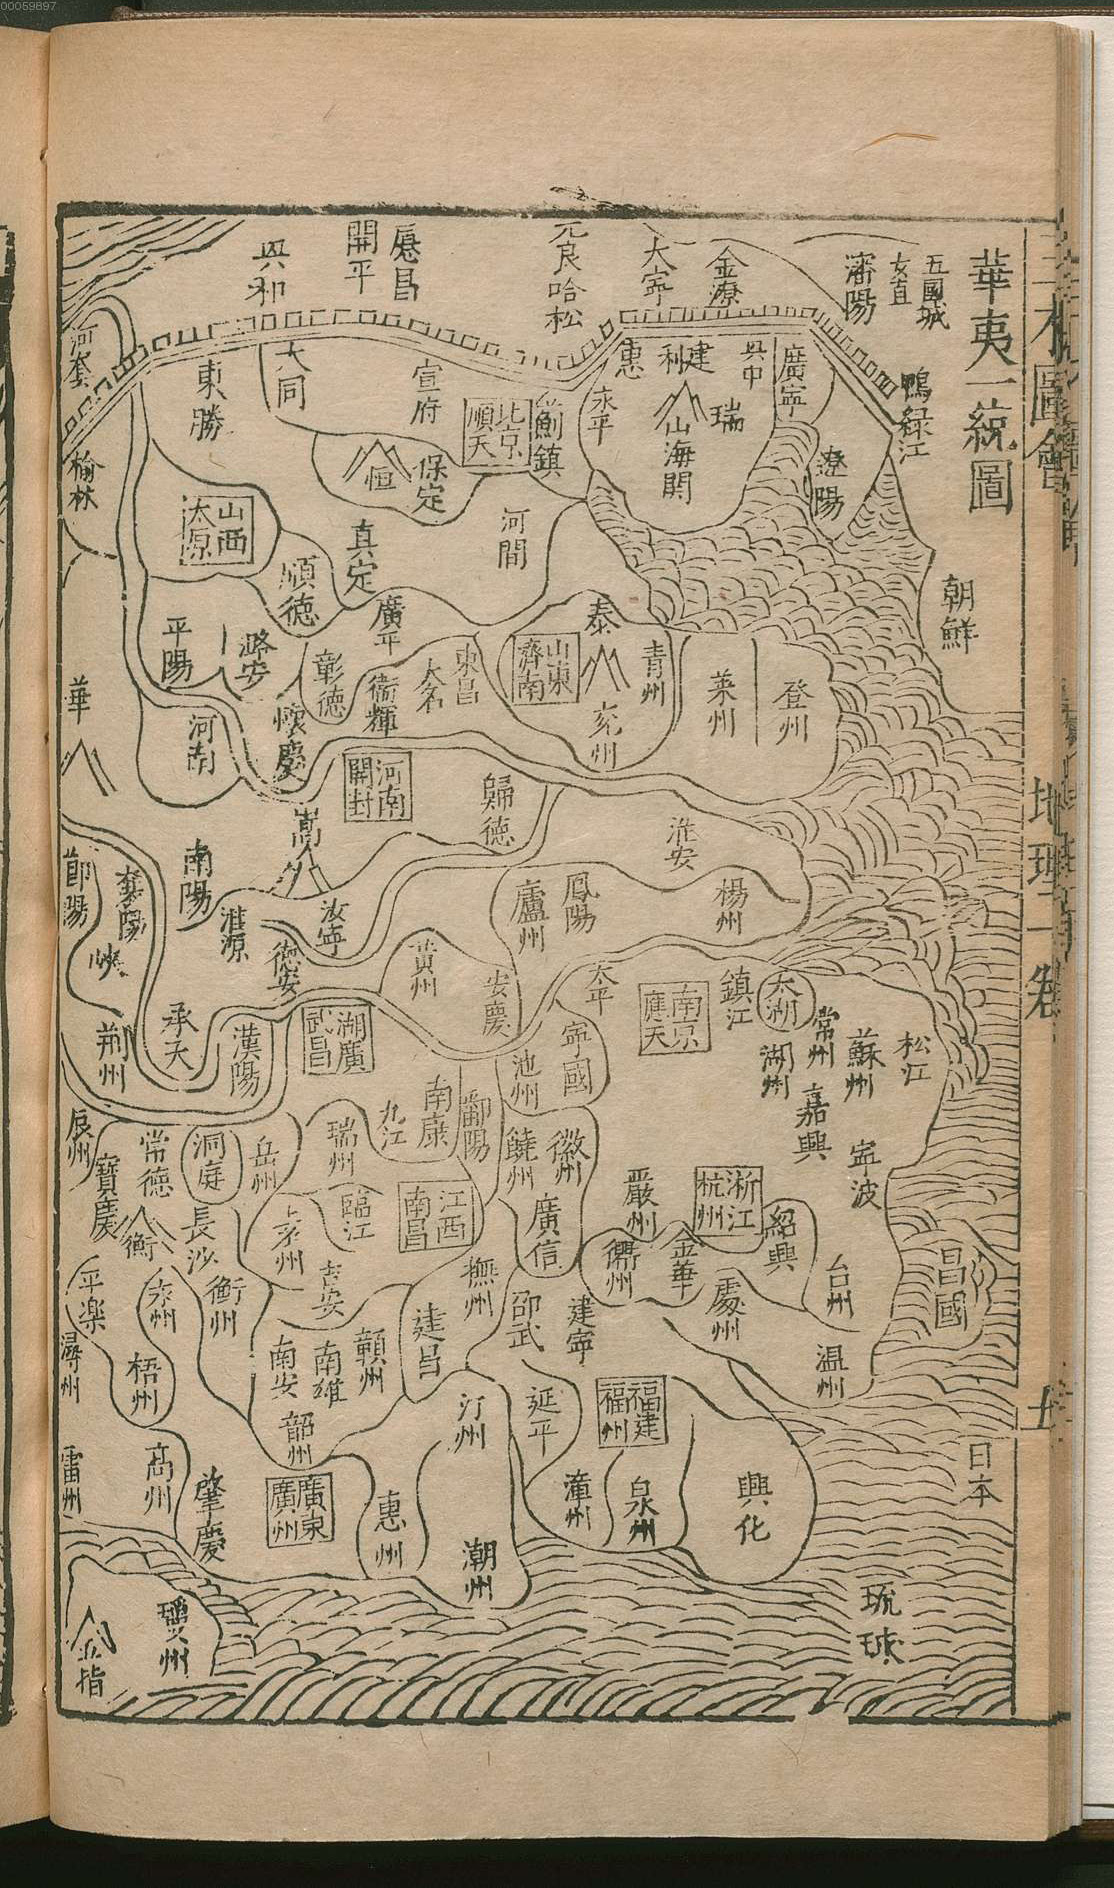 00059897
華夷一統圖
三才圖會
地理一卷
五國城
女直
瀋陽
鴨緑江
朝鮮
金
大寧
哈
開平
河套
榆林
東勝
大同
宣府
北京
順天
薊鎮
惠
利建
永平
山海関
瑞
廣寧
遼陽
恒
保定
河間
真定
山西
太原
順德
廣平
平陽
潞安
彰德
衛輝
大名
東昌
山東
濟南
泰
青州
兖州
萊州
登州
華
河南
懷慶
河南
開封
歸德
嵩
南陽
淮源
汝寧
淮安
楊州
鳳陽
廬州
德安
黃州
安慶
太平
寧國
池州
南京
應天
鎮江
太湖
常州
湖州
蘇州
松江
嘉興
寧波
昌國
荆州
承天
漢陽
湖廣
武昌
辰州
寶慶
常德
洞庭
岳州
衡
長沙
衡州
瑞州
九江
南康
鄱陽
饒州
徽州
廣信
臨江
江西
南昌
吉安
撫州
建昌
邵武
建寧
嚴州
浙江
杭州
衢州
金華
紹興
處州
台州
温州
平楽
潯州
梧州
南安
南雄
贛州
韶州
汀州
延平
福建
福州
漳州
泉州
興化
日本
琉球
雷州
高州
肇慶
廣東
廣州
惠州
潮州
瓊州
五指